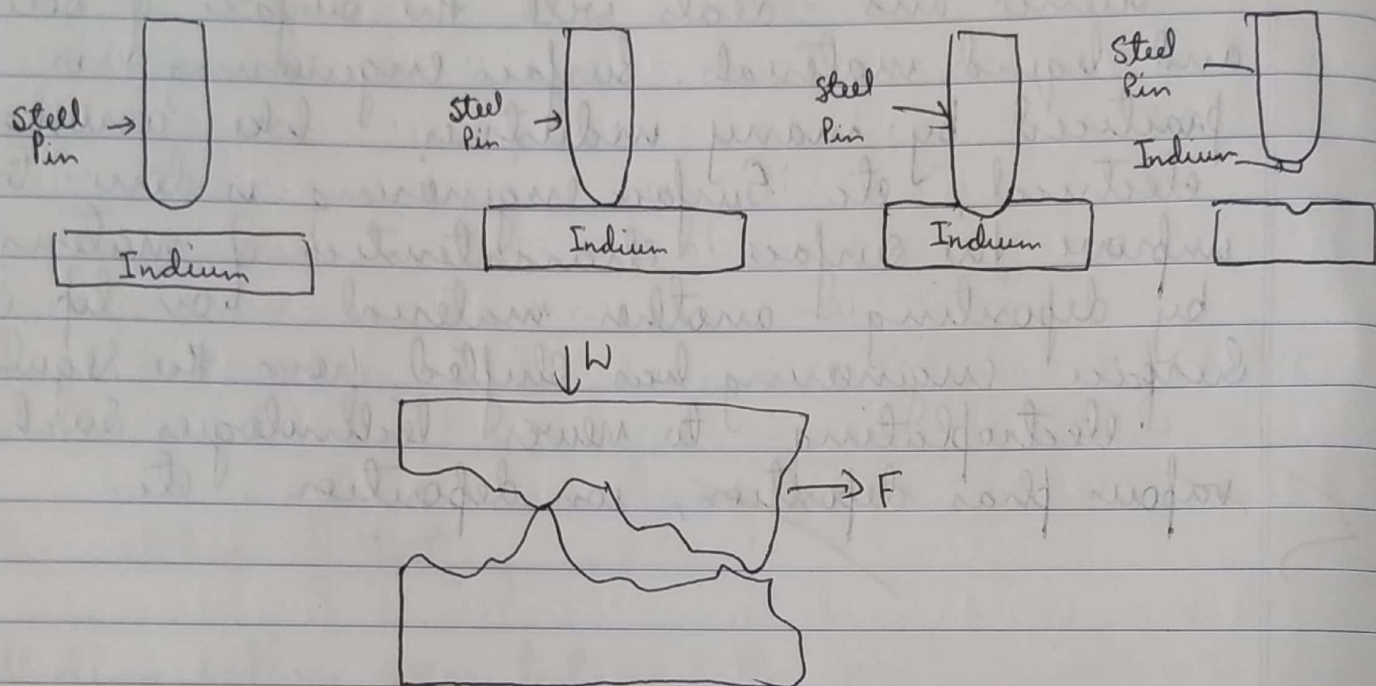 Steel
Pin
Indium
Steel
Pin
Indium
Steel
Pin
Indium
Steel
Pin
Indium
W
F